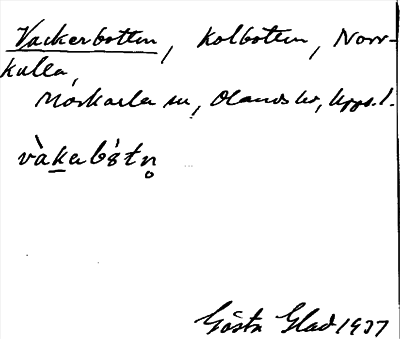 Vackerbotten, Kolbotten, Norr-
kulla,
Morkarla sn, Olands hd, Upps. l.
vàkɐbótn̥
Gösta Glad 1937